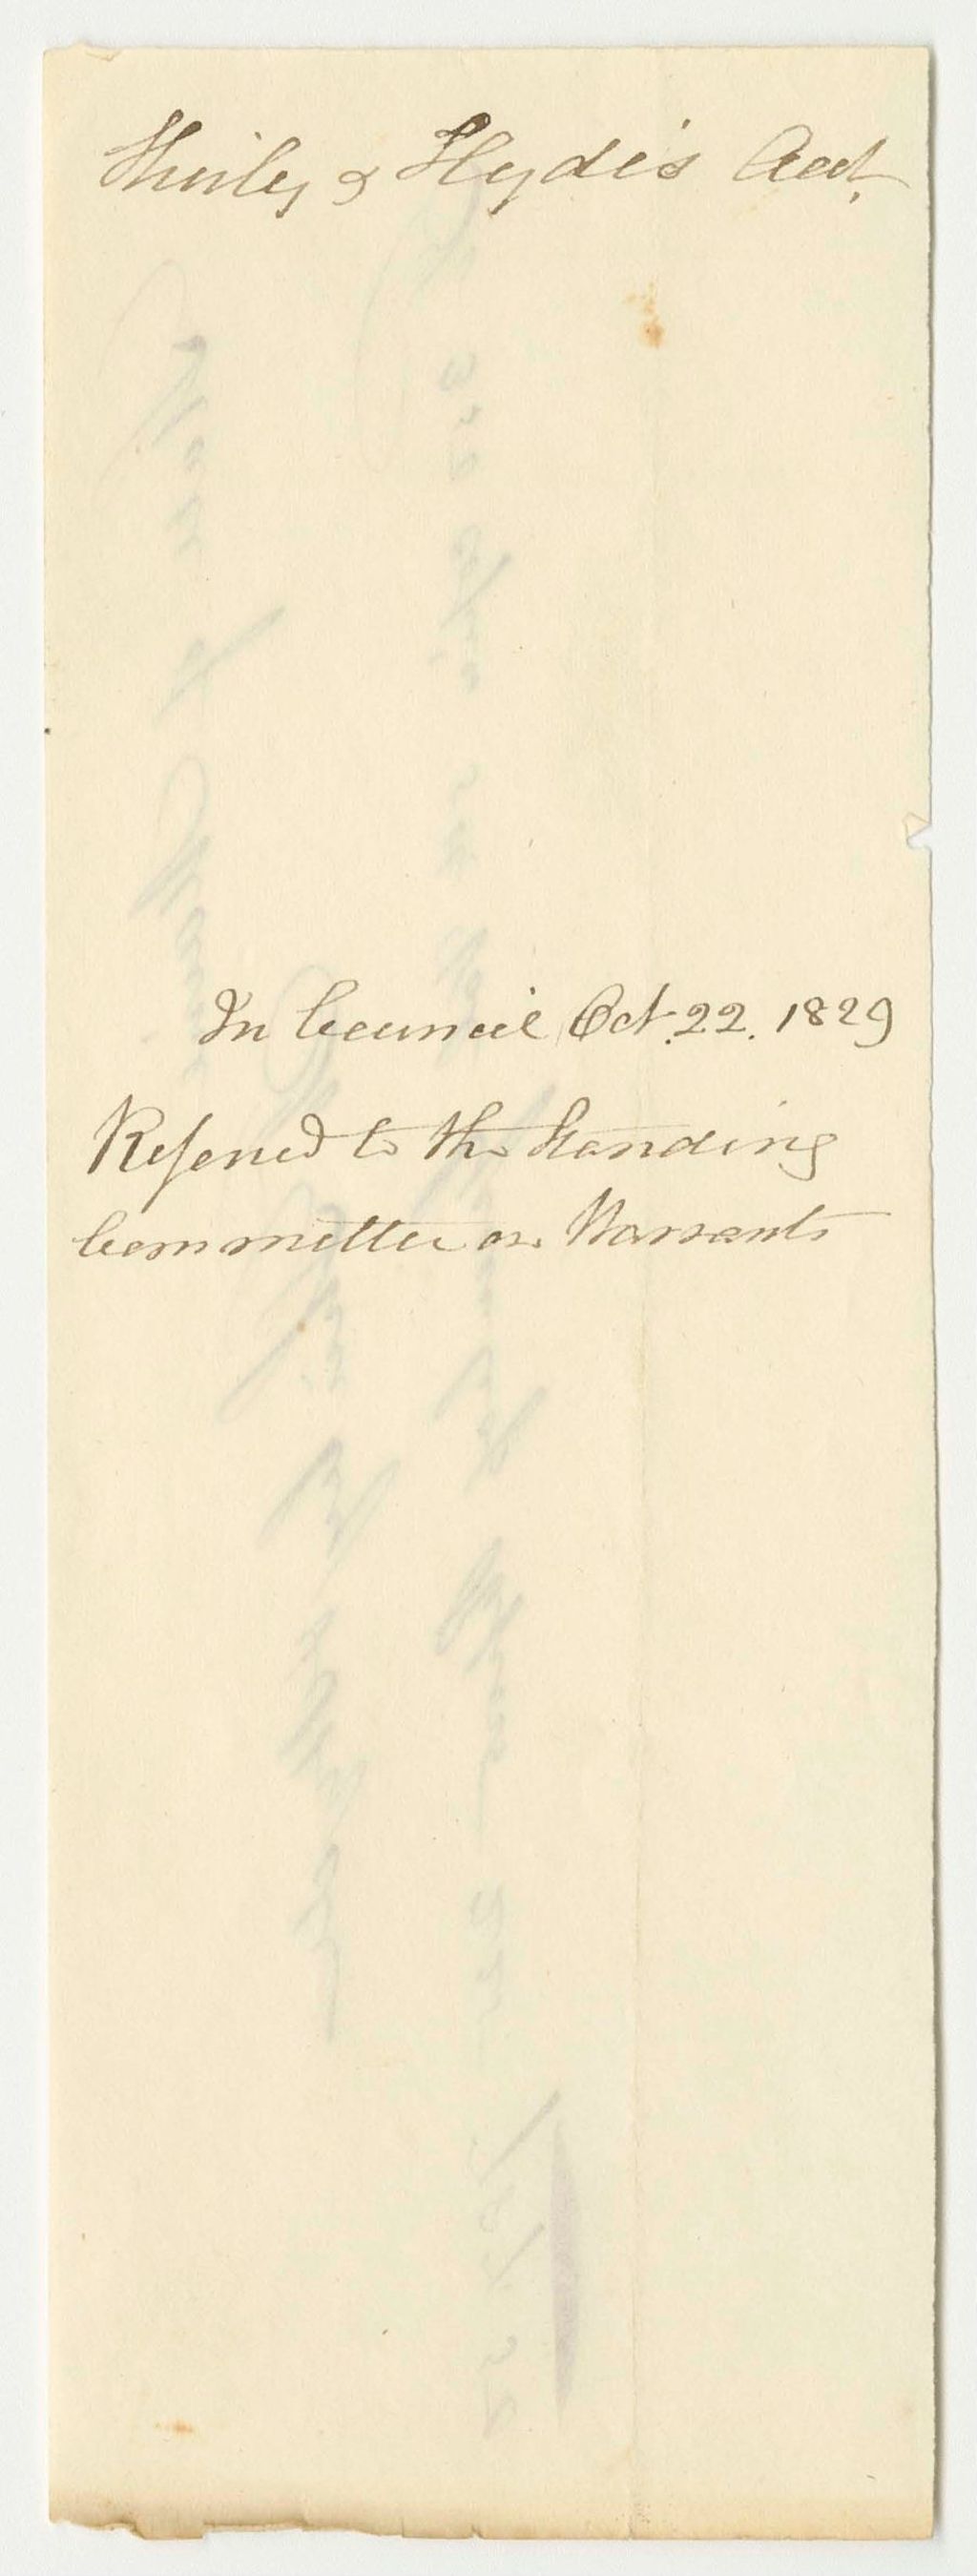 Shirley & Hyde's Acct.
In Council Oct. 22. 1829
Referred to the Standing
Committee on Warrants